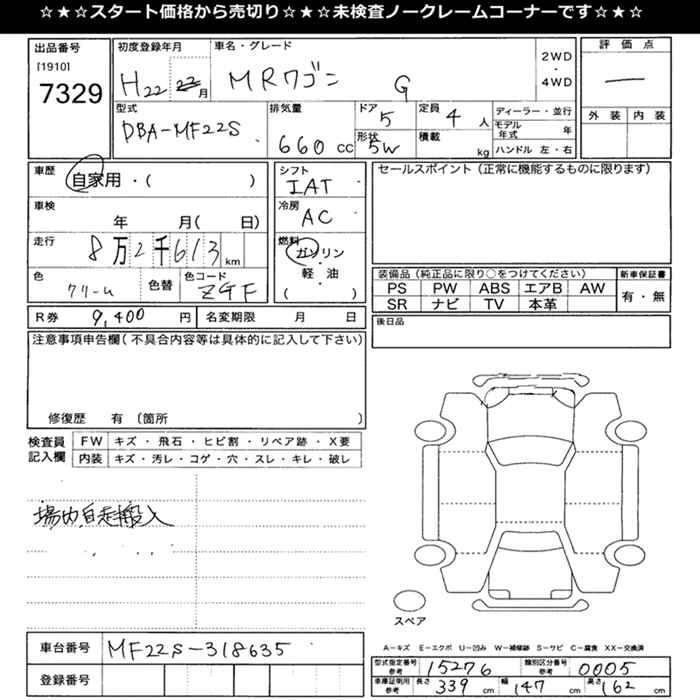 ☆★☆★スタート価格から売切り☆★☆★未検査ノークレームコーナーです☆★☆★
出品番号
[1910]
7329
初度登録年月
H22 22月
車名・グレード
MRワゴン G
2WD
・
4WD
評価点
―
外装 内装
型式
DBA-MF22S
排気量
660 cc
ドア
5
形状
5W
定員
4 人
積載
kg
ディーラー・並行
モデル年式 年
ハンドル 左・右
車歴
自家用・( )
車検
年 月( 日)
走行
8万2千613 km
色
クリーム
色替
色コード
Z9F
シフト
IAT
冷房
AC
燃料
ガソリン
・
軽・油
( )
セールスポイント(正常に機能するものに限ります)
装備品(純正品に限り○をつけてください)
PS PW ABS エアB AW
SR ナビ TV 本革
新車保証書
有・無
R券 9,400 円
名変期限 月 日
後日品
注意事項申告欄(不具合内容等は具体的に記入して下さい)
修復歴 有 (箇所 )
検査員記入欄
FW キズ・飛石・ヒビ割・リペア跡・X要
内装 キズ・汚レ・コゲ・穴・スレ・キレ・破レ
場内自走搬入
スペア
A-キズ E-エクボ U-凹み W-補修跡 S-サビ C-腐食 XX-交換済
車台番号
MF22S-318635
登録番号
型式指定番号参考 15276
類別区分番号参考 0005
車庫証明用参考 長さ 339 cm 幅 147 cm 高さ 162 cm